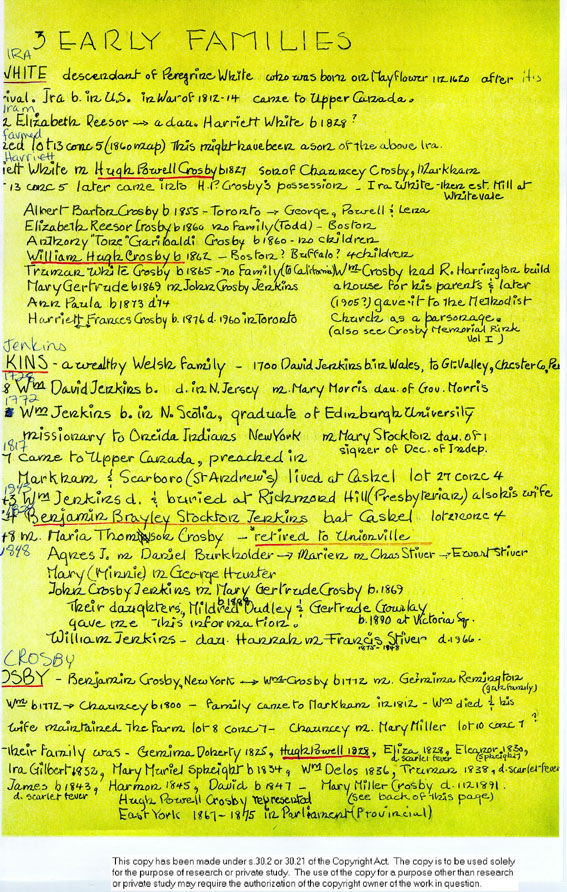 3 EARLY FAMILIES
IRA
WHITE descendant of Peregrine White who was born on Mayflower in 1620 after its
rival. Ira b. in U.S. in War of 1812-14 came to Upper Canada.
Iram
Elizabeth Reesor → a dau. Harriett White b 1828?
farmed
zed lot 13 conc 5 (1860 map) This might have been a son of the above Ira.
Harriett
iett White m Hugh Powell Crosby b 1827 son of Chauncey Crosby, Markham
13 conc 5 later came into H.P. Crosby's possession - Ira White then est. Mill at
Whitevale
Albert Barton Crosby b 1855 - Toronto → George, Powell & Lena
Elizabeth Reesor Crosby b 1860 no family (Todd) - Boston
Anthony "Tone" Garibaldi Crosby b 1860 - no children
William Hugh Crosby b 1862 - Boston? Buffalo? 4 children
Truman White Crosby b 1865 - no family (to California) Wm Crosby had R. Harrington build
Mary Gertrude b 1869 m John Crosby Jenkins a house for his parents & later
Ann Paula b 1873 d 74 (1905?) gave it to the Methodist
Harriett Frances Crosby b. 1876 d. 1960 in Toronto Church as a parsonage.
(also see Crosby Memorial Rink
Vol I)
Jenkins
KINS - a wealthy Welsh family - 1700 David Jenkins b in Wales, to Gt. Valley, Chester Co, Pen
1728
8 Wm David Jenkins b. d. in N. Jersey m. Mary Morris dau. of Gov. Morris
1772
Wm Jenkins b. in N. Scotia, graduate of Edinburgh University
missionary to Oneida Indians New York m Mary Stockton dau. of 1
signer of Dec. of Indep.
1817
7 Came to Upper Canada, preached in
Markham & Scarboro (St Andrew's) lived at Cashel lot 27 conc 4
43 Wm Jenkins d. & buried at Richmond Hill (Presbyterian) also his wife
Benjamin Brayley Stockton Jenkins bat Cashel lot 27 conc 4
48 m. Maria Thomson Crosby - *retired to Unionville
1848
Agnes J. m Daniel Burkholder → Marien m Chas Stiver → Ewart Stiver
Mary (Minnie) m George Hunter
John Crosby Jenkins m Mary Gertrude Crosby b. 1869
Their daughters, Mildred Dudley & Gertrude Gourlay
gave me this information. b. 1890 at Victoria Sq.
William Jenkins - dau. Hannah m Francis Stiver d. 1966.
CROSBY
OSBY - Benjamin Crosby, New York → Wm Crosby b 1772 m. Gemima Remington
(Gah family)
Wm b 1772 → Chauncey b 1800 - Family came to Markham in 1812 - Wm died & his
wife maintained the farm lot 8 conc 7 - Chauncey m. Mary Miller lot 10 conc 7?
Their family was - Gemima Doherty 1825, Hugh Powell 1828, Eliza 1828, Eleanor 1830,
d. scarlet fever (Speight)
Ira Gilbert 1832, Mary Muriel Speight b 1834, Wm Delos 1836, Truman 1838, d. scarlet fever
James b 1843, Harmon 1845, David b 1847 - Mary (Miller) Crosby d. 1121891.
d. scarlet fever Hugh Powell Crosby represented (see back of this page)
East York 1867-1875 in Parliament (Provincial)
This copy has been made under s.30.2 or 30.21 of the Copyright Act. The copy is to be used solely
for the purpose of research or private study. The use of the copy for a purpose other than research
or private study may require the authorization of the copyright owner of the work in question.